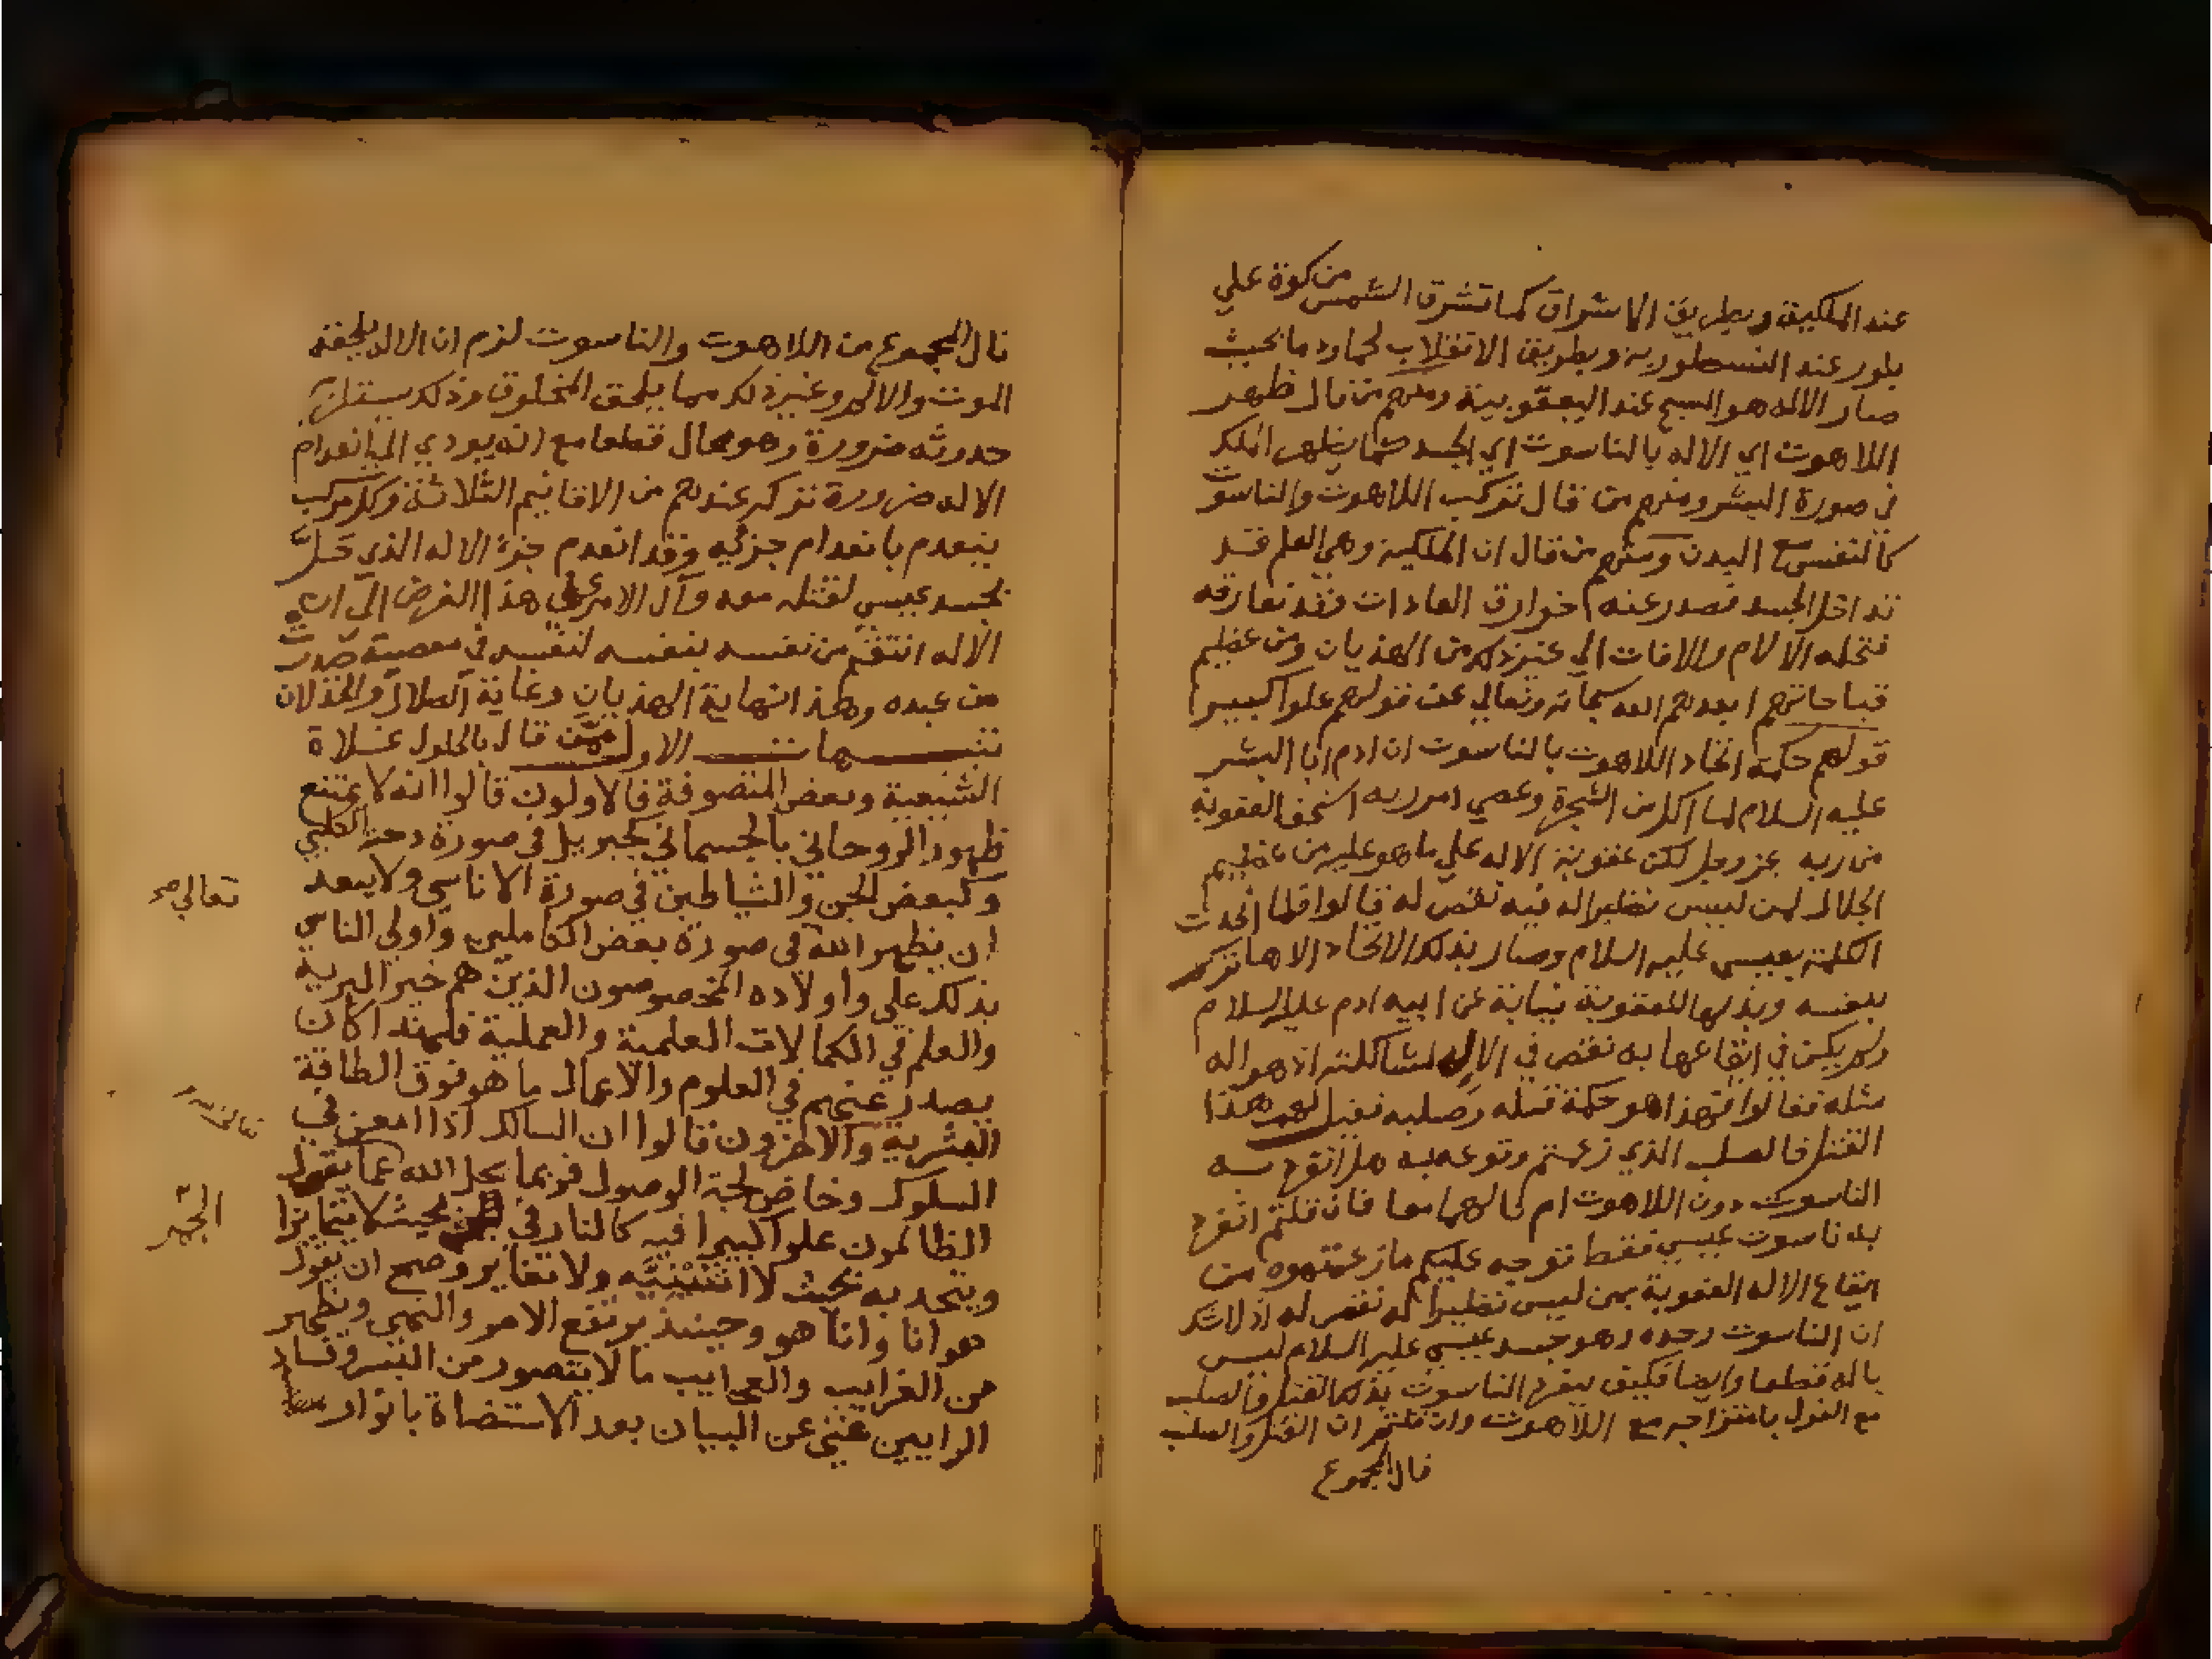 عند الملكية وبطريق الاشراق كما تشرق الشمس من كوة علي
بلور عند النسطورية وبطريق الانقلاب لحما ودما بحيث
صار الاله هو المسيح عند اليعقوبية ومنهم من قال ظهر
اللاهوت اي الاله بالناسوت اي الجسد كما يظهر الملك
في صورة البشر ومنهم من قال تركب اللاهوت والناسوت
كالنفس مع البدن ومنهم من قال ان الملكية وهي العلم قد
تداخل الجسد فصدر عنه خوارق العادات وقد تفارقه
فتحله الالام والافات الي غير ذلك من الهذيان ومن عظيم
قباحاتهم ابعدهم الله سبحانه وتعالي عن قولهم علوا كبيرا
قولهم حكمة اتحاد اللاهوت بالناسوت ان ادم ابا البشر
عليه السلام لما اكل من الشجرة وعصي امر ربه استحق العقوبة
من ربه عز وجل لكن عقوبة الاله علي ما هو عليه من عظيم
الجلال لمن ليس نظيرا له فيه نقص له قالوا فلما اتحدت
الكلمة بعيسي عليه السلام وصار بذلك الاتحاد الاها تكرم
بنفسه وبذلها للعقوبة نيابة عن ابيه ادم عليه السلام
ولم يكن في ايقاعها به نقص في الاله لمشاكلته اذ هو اله
مثله فقالوا فهذا هو حكمة قتله وصلبه فقيل لهم هذا
القتل والصلب الذي زعمتم وقوعه به هل انفرد به
الناسوت دون اللاهوت ام نالهما معا فان قلتم انفرد
به ناسوت عيسي فقط توجه عليكم ما زعمتموه من
ايقاع الاله العقوبة بمن ليس نظيرا له نقص له اذ لا شك
ان الناسوت وحده وهو جسد عيسي عليه السلام ليس
باله قطعا وايضا فكيف ينفرد الناسوت بذلك القتل والصلب
مع القول بامتزاجه مع اللاهوت وان قلتم ان القتل والصلب
نال المجموع
نال المجموع من اللاهوت والناسوت لزم ان الاله يلحقه
الموت والالم وغير ذلك مما يلحق المخلوق وذلك يستلزم
حدوثه ضرورة وهو محال قطعا مع انه يودي الي انعدام
الاله ضرورة تركبه عندهم من الاقانيم الثلاثة وكل مركب
ينعدم بانعدام جزئه وقد انعدم جزء الاله الذي حل
بجسد عيسي لقتله معه وآل الامر علي هذا الفرض الي ان
الاله انتقم من نفسه بنفسه لنفسه في معصية صدرت
من عبده وهذا نهاية الهذيان وغاية الضلال والخذلان
تنبيهات الاول ممن قال بالحلول غلاة
الشيعية وبعض المتصوفة فالاولون قالوا انه لا يمتنع
ظهور الروحاني بالجسماني كجبريل في صورة دحية الكلبي
وكبعض الجن والشياطين في صورة الاناسي ولا يبعد
ان يظهر الله في صورة بعض الكاملين واولي الناس
تعالي صح
بذلك علي واولاده المخصوصون الذين هم خير البرية
والعلم في الكمالات العلمية والعملية فلهذا كان
يصدر عنهم في العلوم والاعمال ما هو فوق الطاقة
البشرية والاخرون قالوا ان السالك اذا امعن في
السلوك وخاض لجة الوصول فربما يحل الله عما يقول
الظالمون علوا كبيرا فيه كالنار في بحيث لا يتمايزا
الجمر
ويتحد به بحيث لا اثنينيه ولا تغاير وصح ان يقول
هو انا وانا هو وحينئذ يرتفع الامر والنهي ويظهر
من الغرايب والعجايب ما لا يتصور من البشر وفساد
الرايين غني عن البيان بعد الاستضاة بانوار